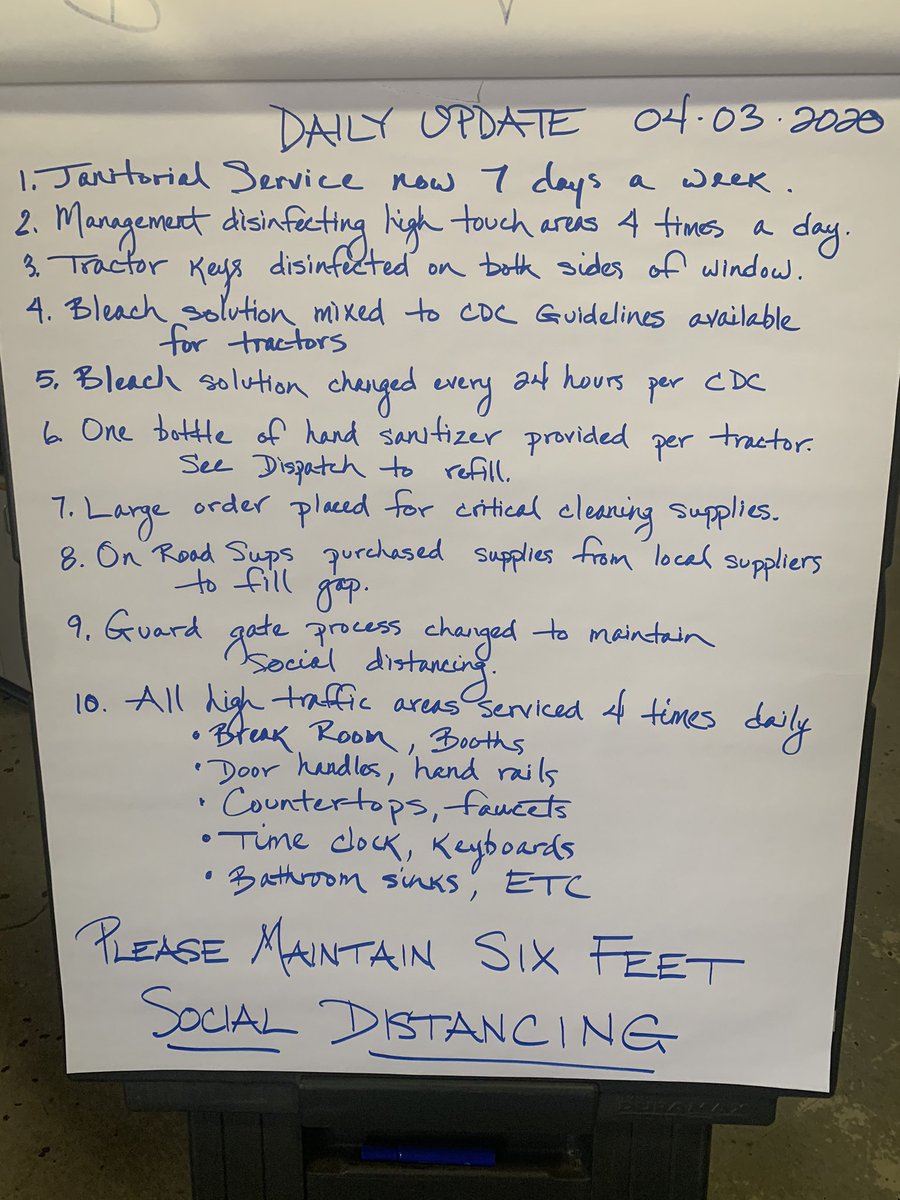 DAILY UPDATE 04.03.2020
1. Janitorial Service now 7 days a week.
2. Management disinfecting high touch areas 4 times a day.
3. Tractor Keys disinfected on both sides of window.
4. Bleach solution mixed to CDC Guidelines available
for tractors
5. Bleach solution changed every 24 hours per CDC
6. One bottle of hand sanitizer provided per tractor.
See Dispatch to refill.
7. Large order placed for critical cleaning supplies.
8. On Road Sups purchased supplies from local suppliers
to fill gap.
9. Guard gate process changed to maintain
Social distancing.
10. All high traffic areas serviced 4 times daily
• Break Room, Booths
• Door handles, hand rails
• Countertops, faucets
• Time clock, Keyboards
• Bathroom sinks, ETC
PLEASE MAINTAIN SIX FEET
SOCIAL DISTANCING